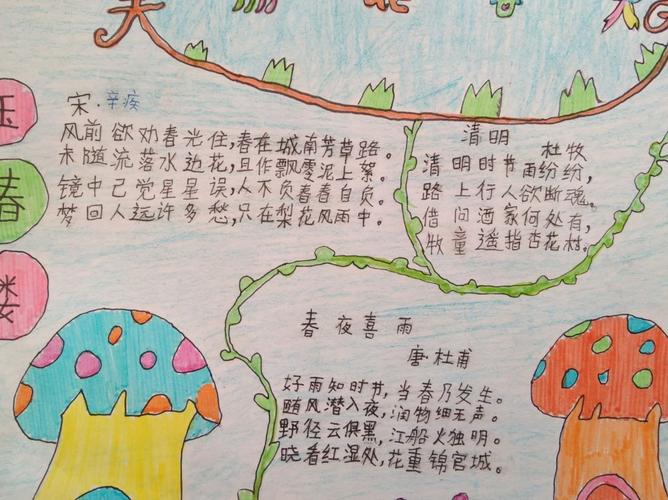 玉
春
楼
宋·辛疾
风前欲劝春光住,春在城南芳草路。
未随流落水边花,且作飘零泥上絮。
镜中已觉星星误,人不负春春自负。
梦回人远许多愁,只在梨花风雨中。
清明
杜牧
清明时节雨纷纷,
路上行人欲断魂。
借问酒家何处有,
牧童遥指杏花枯。
春夜喜雨
唐·杜甫
好雨知时节,当春乃发生。
随风潜入夜,润物细无声。
野径云俱黑,江船火独明。
晓看红湿处,花重锦官城。